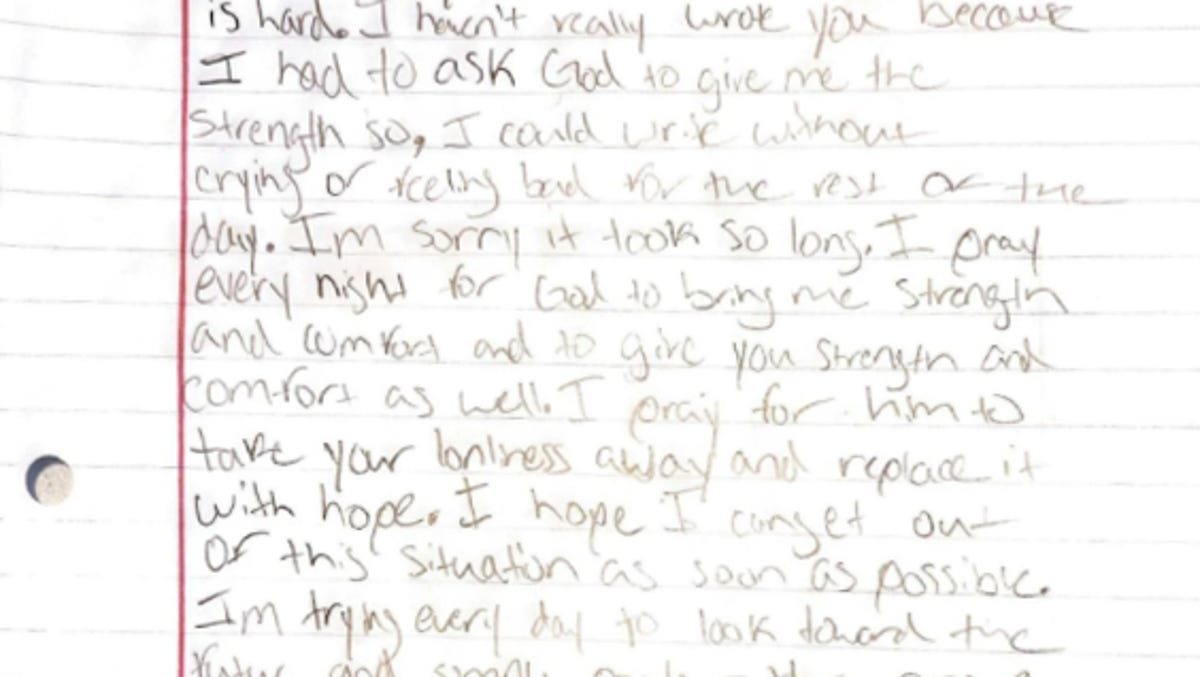 is hard. I havn't really wrote you because
I had to ask God to give me the
Strength so, I could write without
crying or feeling bad for the rest of the
day. Im sorry it took so long. I pray
every night for God to bring me strength
and comfort and to give you strength and
comfort as well. I pray for him to
take your lonlness away and replace it
with hope. I hope I can get out
of this situation as soon as possible.
Im trying every day to look toward the
future and